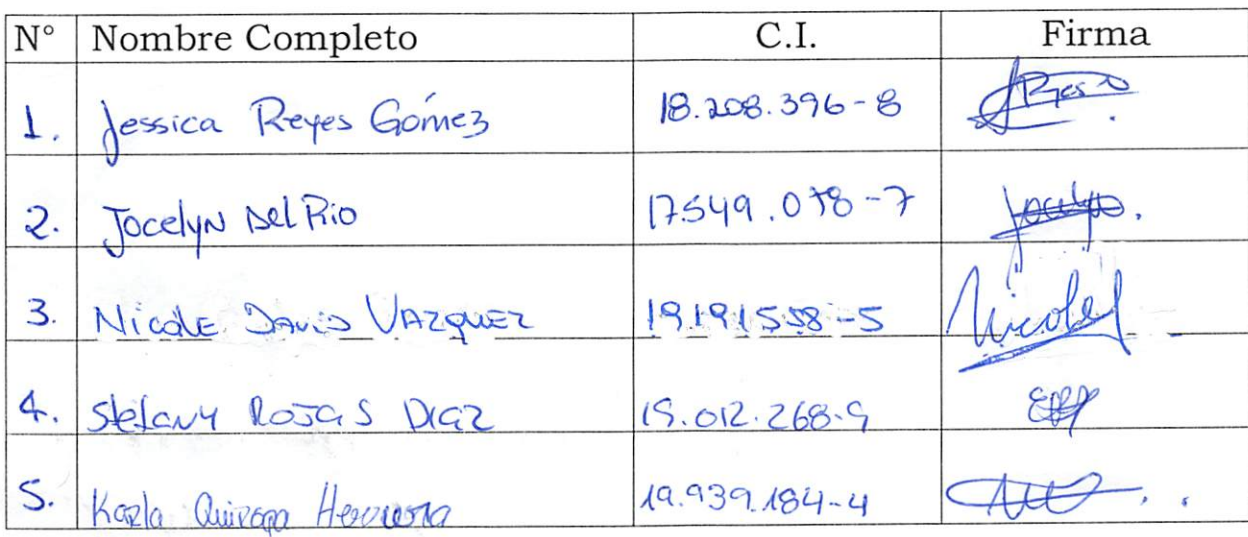 N° Nombre Completo C.I. Firma
1. Jessica Reyes Gómez 18.208.396-8
2. Jocelyn Del Rio 17.549.078-7 Jocelyn.
3. Nicole Davis Vazquez 19191558-5 Nicole
4. Stefany Rojas Diaz 19.012.268-9
5. Karla Herrera 19.939.184-4